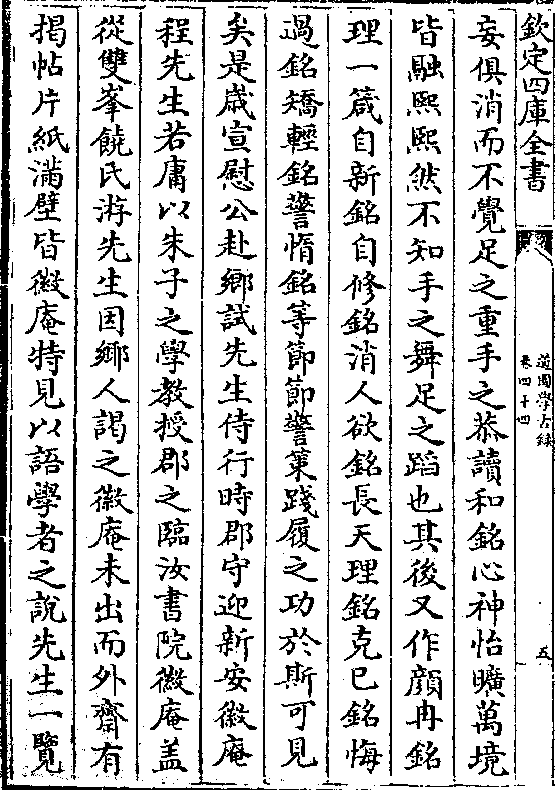 欽定四庫全書
道園學古録
卷四十四
五
妄俱消而不覺足之重手之恭讀和銘心神怡曠萬境
皆融熙熙然不知手之舞足之蹈也其後又作顔冉銘
理一箴自新銘自修銘消人欲銘長天理銘克已銘悔
過銘矯輕銘警惰銘等節節警策踐履之功於斯可見
矣是歳宣慰公赴鄉試先生侍行時郡守迎新安徽庵
程先生若庸以朱子之學教授郡之臨汝書院徽庵盖
從雙峯饒氏游先生因鄉人謁之徽庵未出而外齋有
揭帖片紙滿壁皆徽庵特見以語學者之說先生一覽